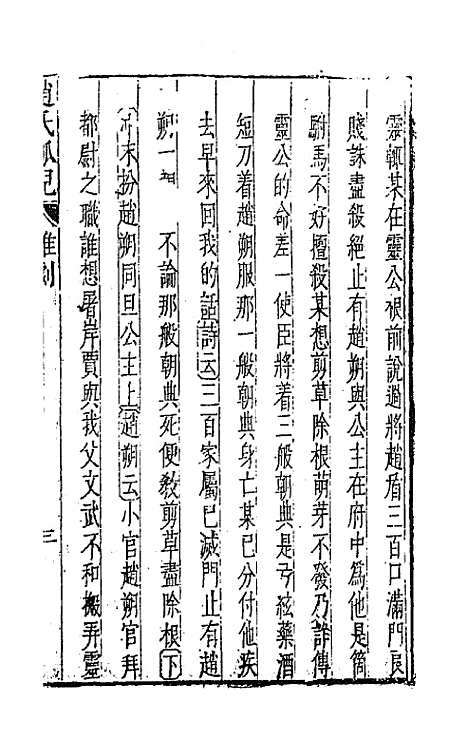 靈輒某在靈公根前說過將趙盾三百口滿門良
賤誅盡殺絕止有趙朔與公主在府中爲他是箇
駙馬不好擅殺某想剪草除根萌芽不發乃詐傳
靈公的命差一使臣將着三般朝典是弓絃藥酒
短刀着趙朔服那一般朝典身亡某已分付他疾
去早來回我的話詩云三百家屬已滅門止有趙
朔一 不論那般朝典死便教剪草盡除根下
冲末扮趙朔同旦公主上趙朔云小官趙朔官拜
都尉之職誰想屠岸賈與我父文武不和搬弄靈
趙氏孤兒 雜劇
三